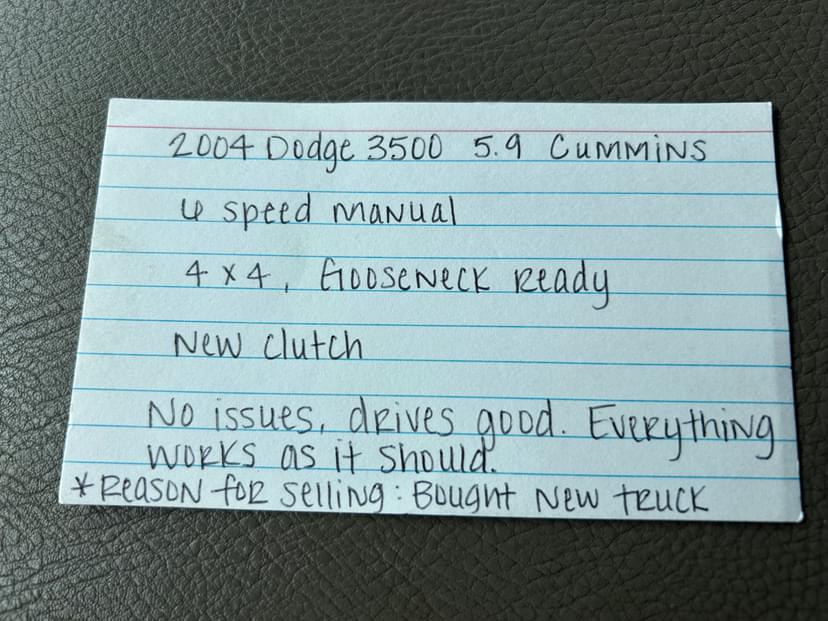 2004 Dodge 3500 5.9 Cummins
6 speed manual
4x4, Gooseneck Ready
New clutch
No issues, drives good. Everything
works as it should.
*Reason for selling: Bought new truck